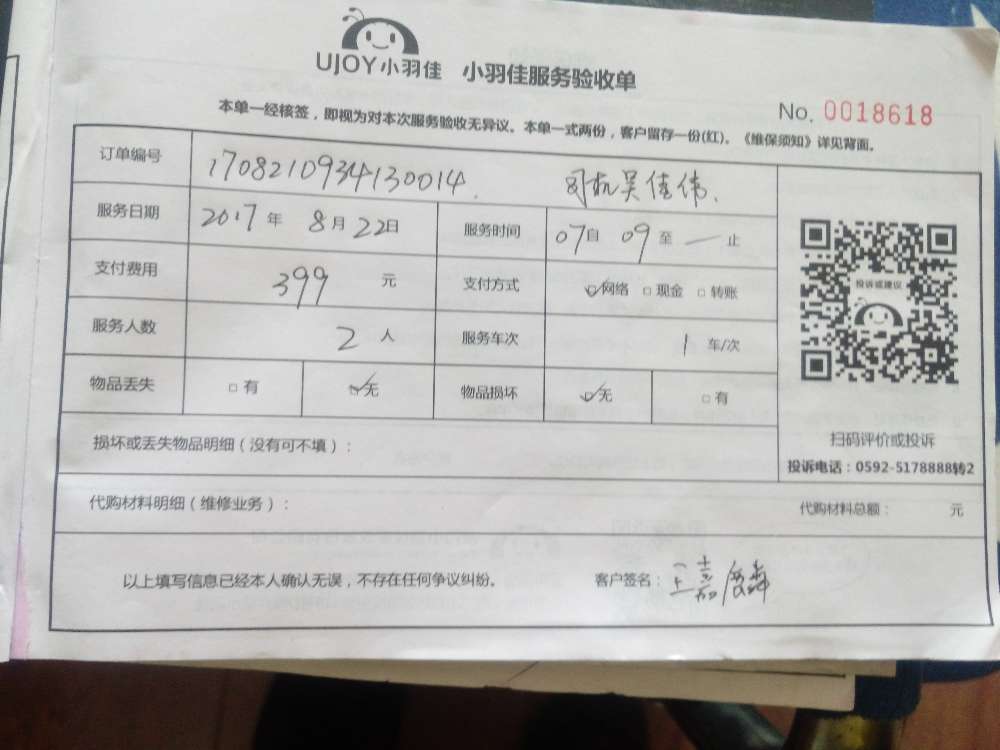 UJOY小羽佳 小羽佳服务验收单
No. 0018618
本单一经核签，即视为对本次服务验收无异议。本单一式两份，客户留存一份(红)。《维保须知》详见背面。
订单编号 1708210934130014. 司机吴佳伟.
服务日期 2017年 8月22日 服务时间 07自 09至 — 止
支付费用 399 元 支付方式 ☑网络 □现金 □转账
服务人数 2 人 服务车次 1 车/次
物品丢失 □有 ☑无 物品损坏 ☑无 □有
投诉或建议
扫码评价或投诉
投诉电话：0592-5178888转2
损坏或丢失物品明细（没有可不填）：
代购材料明细（维修业务）： 代购材料总额： 元
以上填写信息已经本人确认无误，不存在任何争议纠纷。 客户签名：